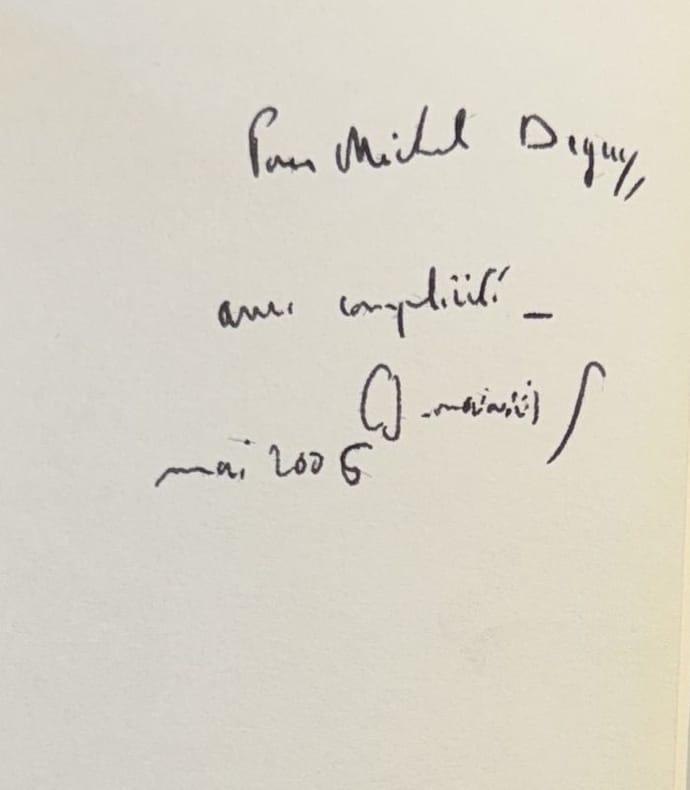 Pour Michel Deguy,
avec complicité –
mai 2006